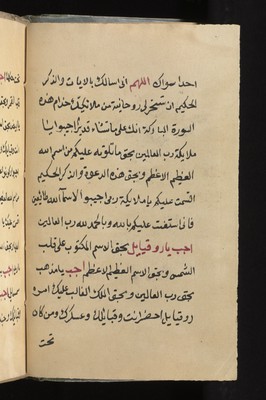 احدا سواك اللهم انى اسالك بالايات والذكر
الحكيم ان تسخر لى روحانية من ملائكتك خدام هذه
السورة المباركة انك على ما تشاء قدير اجيبوا يا
ملايكة رب العالمين بحق ما تلوته عليكم من اسم الله
العظيم الاعظم وبحق هذه الدعوة والذكر الحكيم
اقسمت عليكم يا ملايكة ربى اجيبوا الاسما الله طائعين
فانى استغثت عليكم بالله وبالحمد لله رب العالمين
اجب يا روقيايل بحق الاسم المكتوب على قلب
الشمس وبحق الاسم العظيم الاعظم اجب يا مذهب
بحق رب العالمين وبحق الملك الغالب عليك امره
روقيايل احضر انت وقبايلك وعسكرك ومن كان
تحت